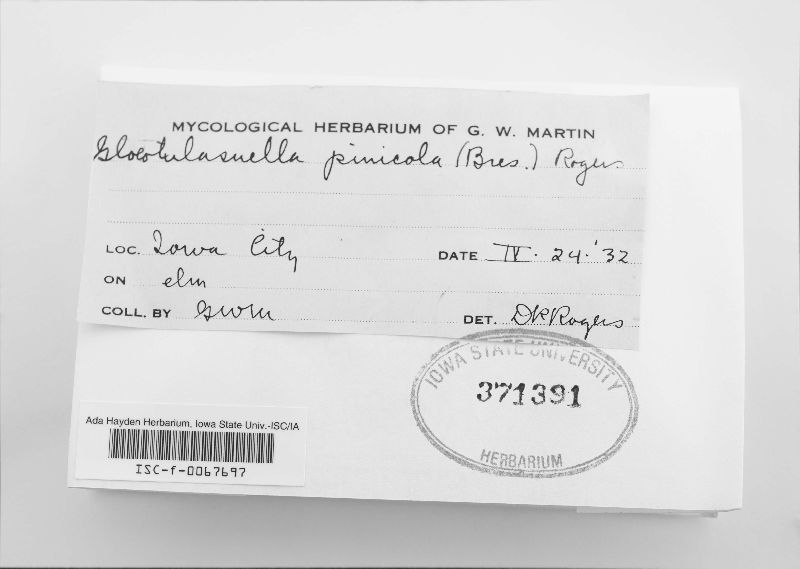 MYCOLOGICAL HERBARIUM OF G. W. MARTIN
Gloeotulasnella pinicola (Bres.) Rogers
LOC. Iowa City
DATE IV. 24. '32
ON elm
COLL. BY GWM
DET. DPRogers
IOWA STATE UNIVERSITY
371391
HERBARIUM
Ada Hayden Herbarium, Iowa State Univ.-ISC/IA
ISC-f-0067697